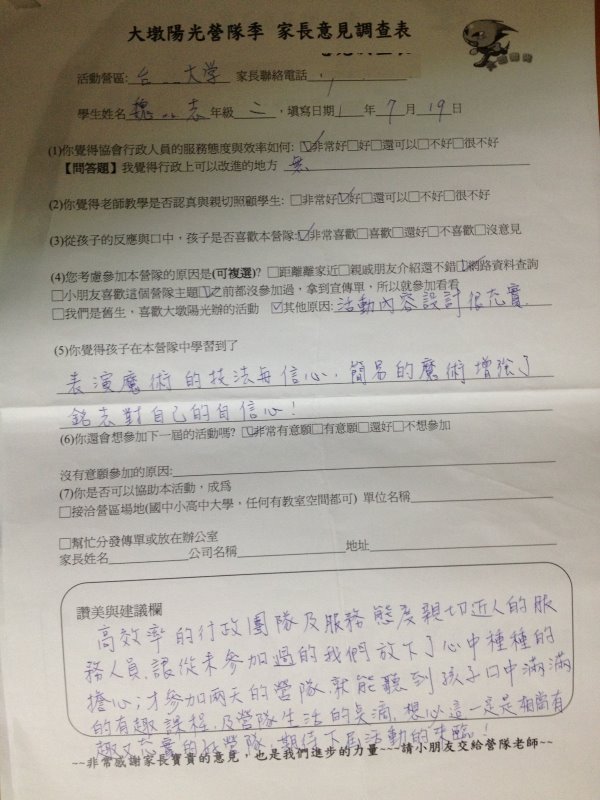 大墩陽光營隊季 家長意見調查表
活動營區: 台 大学 家長聯絡電話
學生姓名 魏 志 年級 二 ，填寫日期 1 年 7 月 19 日
(1)你覺得協會行政人員的服務態度與效率如何: ☑非常好□好□還可以□不好□很不好
【問答題】我覺得行政上可以改進的地方 無
(2)你覺得老師教學是否認真與親切照顧學生: □非常好☑好□還可以□不好□很不好
(3)從孩子的反應與口中，孩子是否喜歡本營隊:☑非常喜歡□喜歡□還好□不喜歡□沒意見
(4)您考慮參加本營隊的原因是(可複選)? □距離離家近□親戚朋友介紹還不錯☑網路資料查詢
□小朋友喜歡這個營隊主題☑之前都沒參加過，拿到宣傳單，所以就參加看看
□我們是舊生，喜歡大墩陽光辦的活動 ☑其他原因: 活動內容設計很充實.
(5)你覺得孩子在本營隊中學習到了
表演魔術的技法與信心，簡易的魔術增強了
銘志對自己的自信心！
(6)你還會想參加下一屆的活動嗎? ☑非常有意願□有意願□還好□不想參加
沒有意願參加的原因:
(7)你是否可以協助本活動，成爲
□接洽營區場地(國中小高中大學，任何有教室空間都可) 單位名稱
□幫忙分發傳單或放在辦公室
家長姓名 公司名稱 地址
讚美與建議欄
高效率的行政團隊及服務態度親切近人的服
務人員.讓從未參加過的我們放下了心中種種的
擔心；才參加兩天的營隊.就能聽到孩子口中滿滿
的有趣課程.及營隊生活的點滴.想必這一定是相當有
趣又充實的 營隊 期待下屆活動的來臨！
~~非常感謝家長寶貴的意見，也是我們進步的力量~~~請小朋友交給營隊老師~~